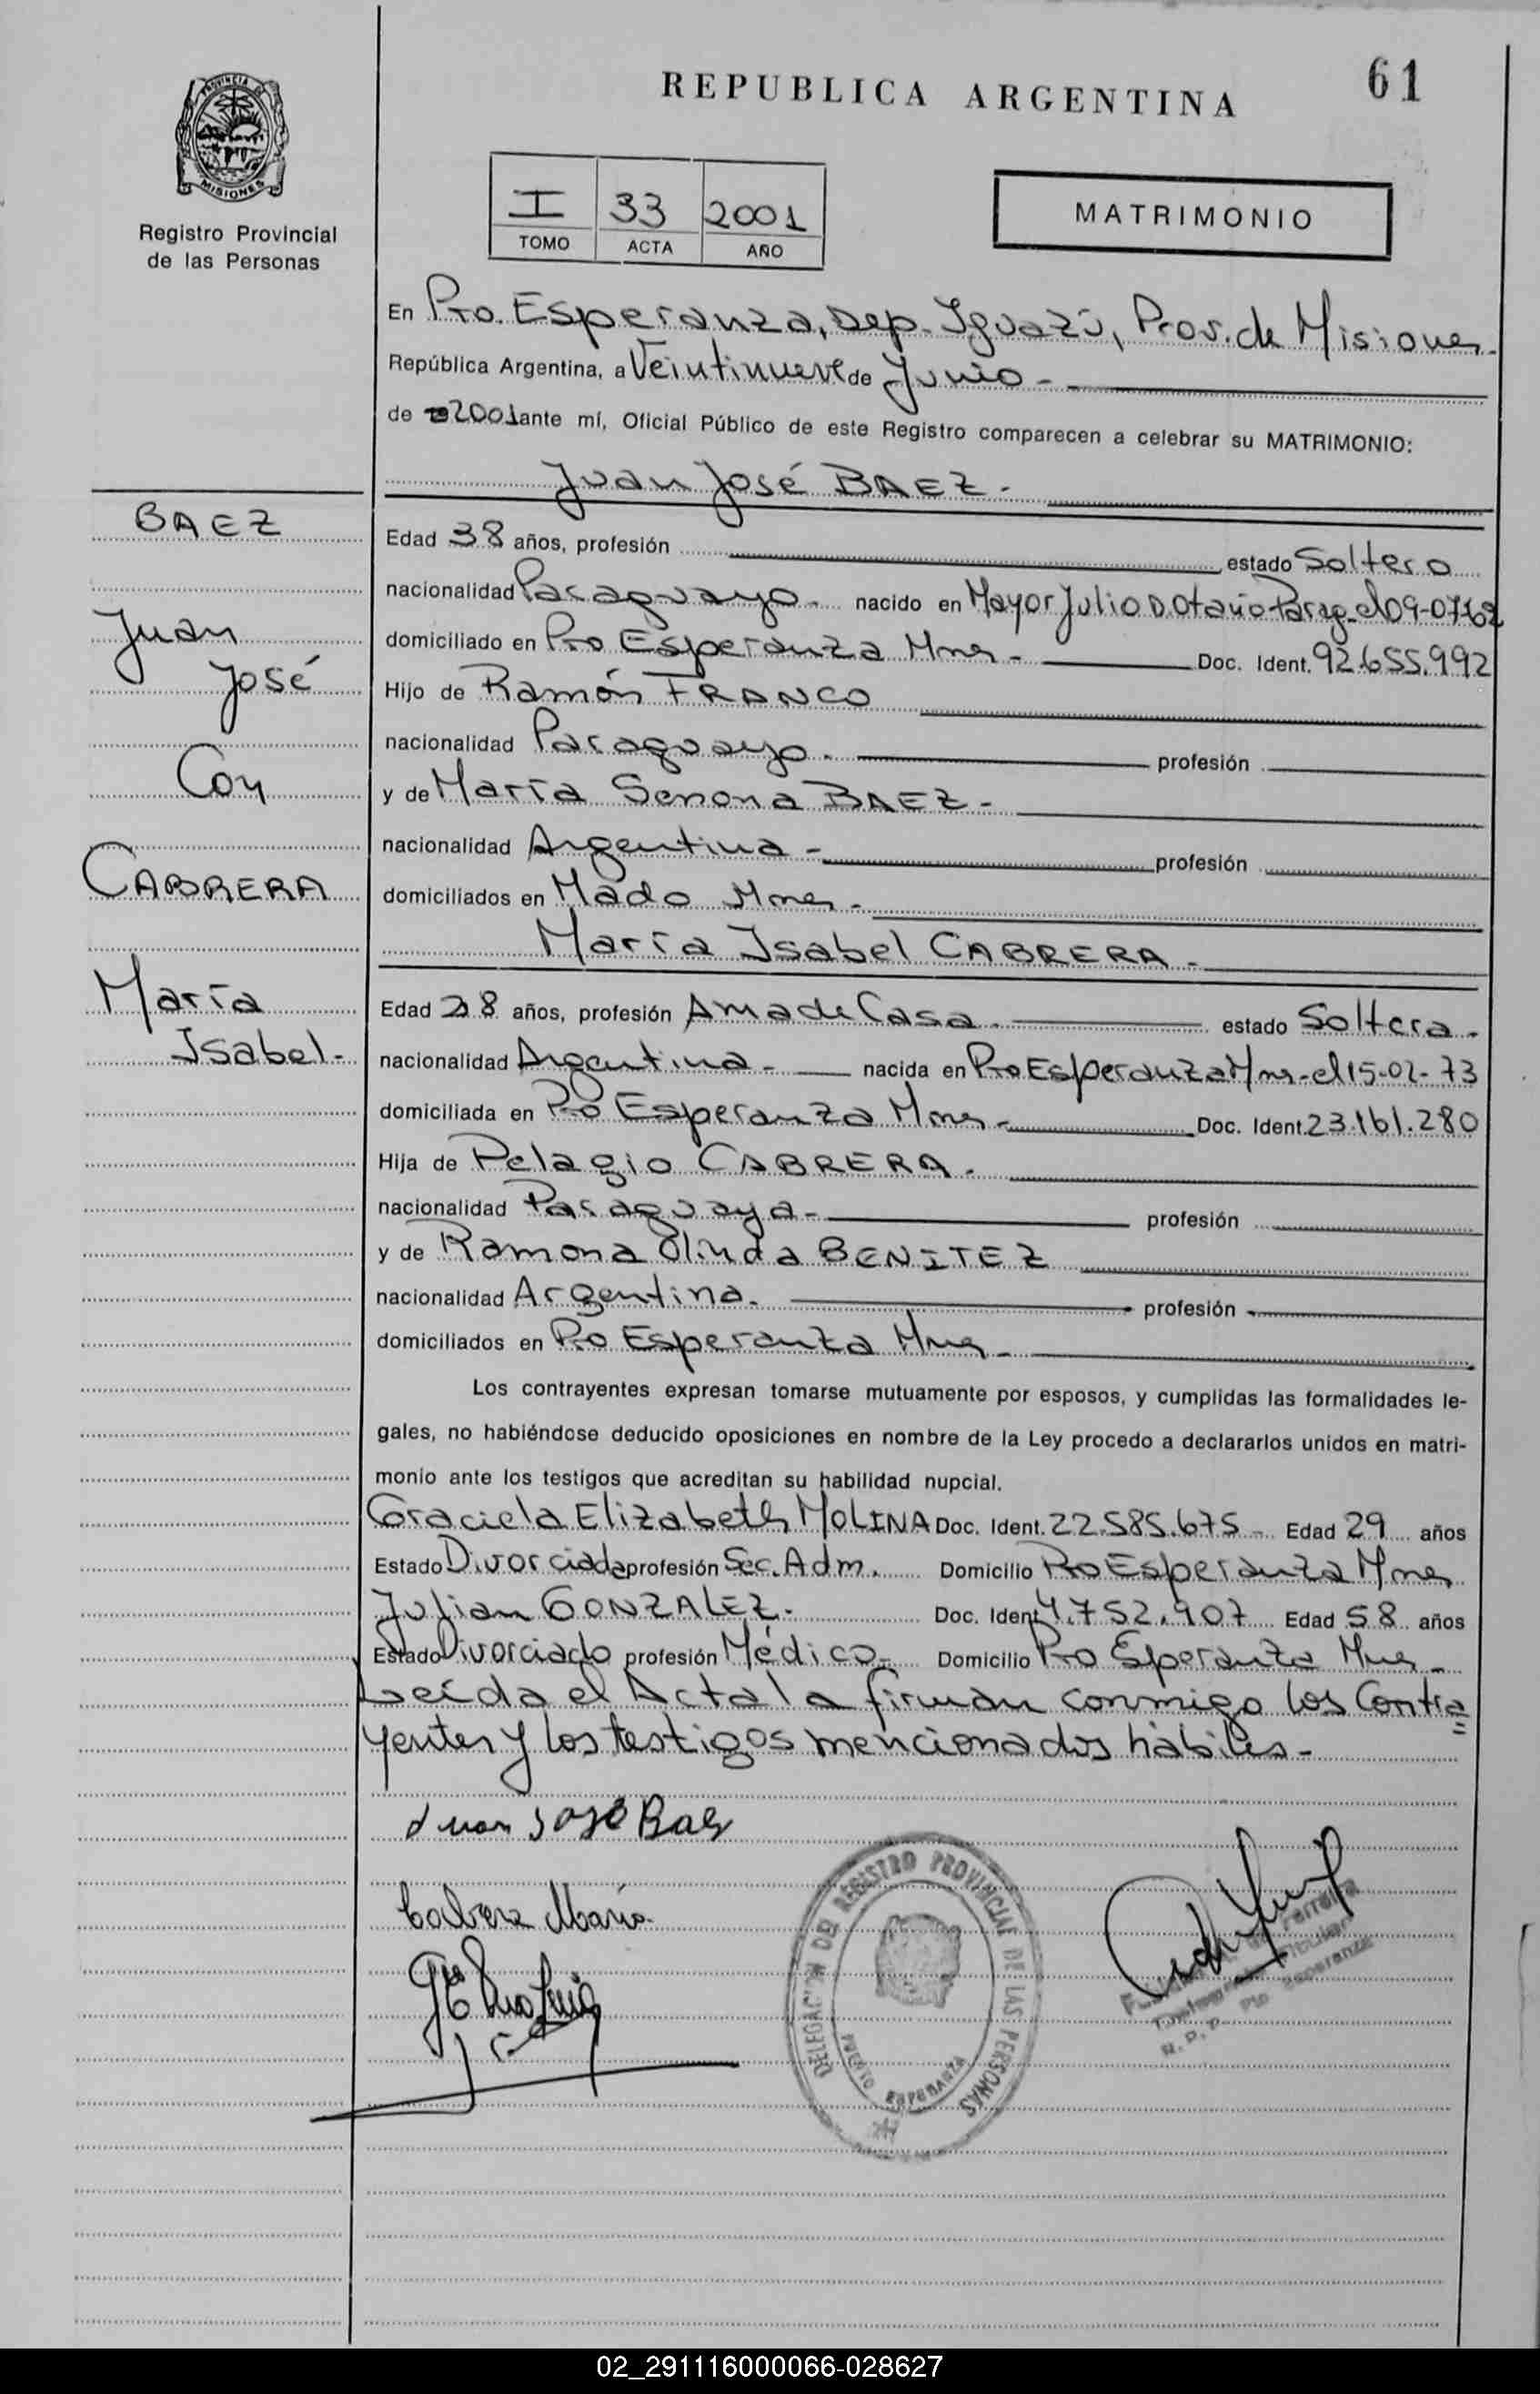 REPUBLICA ARGENTINA
61
PROVINCIA DE
MISIONES
Registro Provincial
de las Personas
I 33 2001
TOMO ACTA AÑO
MATRIMONIO
En Pto. Esperanza, Dep. Iguazú, Prov. de Misiones.
República Argentina, a Veintinueve de Junio -
de 2001 ante mí, Oficial Público de este Registro comparecen a celebrar su MATRIMONIO:
Juan José BAEZ -
BAEZ
Juan
José
Con
CABRERA
María
Isabel -
Edad 38 años, profesión estado Soltero
nacionalidad Paraguayo - nacido en Mayor Julio D. Otaño - Parag - el 09-07-62
domiciliado en Pto Esperanza Mnes - Doc. Ident. 92.655.992
Hijo de Ramón FRANCO
nacionalidad Paraguayo - profesión
y de María Senona BAEZ -
nacionalidad Argentina - profesión
domiciliados en Mado Mnes -
María Isabel CABRERA -
Edad 28 años, profesión Ama de Casa - estado Soltera -
nacionalidad Argentina - nacida en Pto Esperanza Mnes - el 15-02-73
domiciliada en Pto Esperanza Mnes - Doc. Ident. 23.161.280
Hija de Pelagio CABRERA -
nacionalidad Paraguaya - profesión
y de Ramona Olinda BENITEZ
nacionalidad Argentina - profesión
domiciliados en Pto Esperanza Mnes -
Los contrayentes expresan tomarse mutuamente por esposos, y cumplidas las formalidades le-
gales, no habiéndose deducido oposiciones en nombre de la Ley procedo a declararlos unidos en matri-
monio ante los testigos que acreditan su habilidad nupcial.
Graciela Elizabeth MOLINA Doc. Ident. 22.585.675 - Edad 29 años
Estado Divorciada profesión Sec. Adm. Domicilio Pto Esperanza Mnes
Julian GONZALEZ - Doc. Ident 4.752.907 Edad 58 años
Estado Divorciado profesión Médico - Domicilio Pto Esperanza Mnes -
Leída el Acta la firman conmigo los Contra=
yentes y los testigos mencionados hábiles -
Juan José Baez
Cabrera María
DELEGACION DEL REGISTRO PROVINCIAL DE LAS PERSONAS
PUERTO ESPERANZA
Ferreira
Titular
R.P.P. Pto Esperanza
02_291116000066-028627